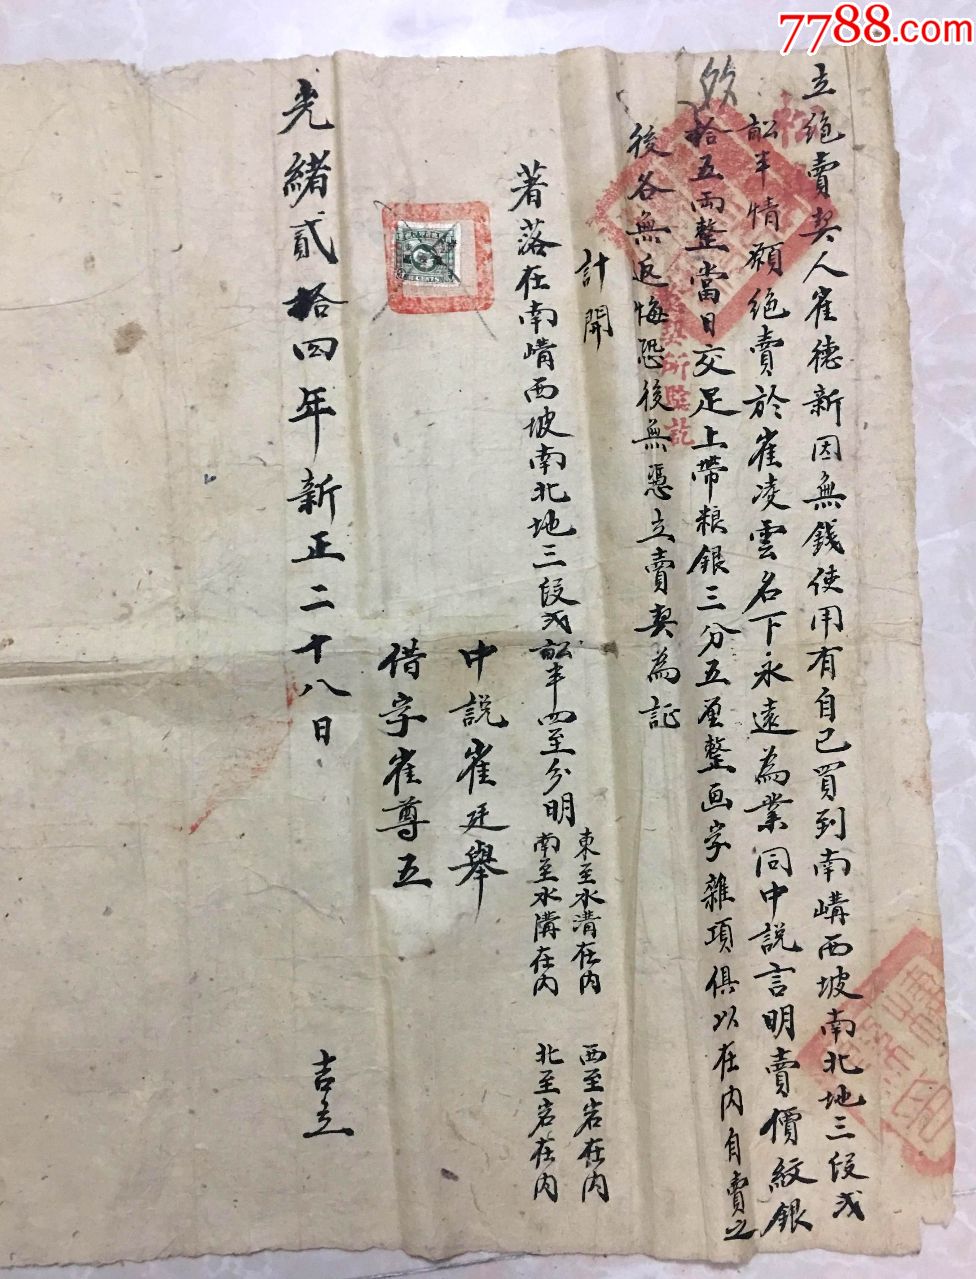 7788.com
立绝賣契人崔德新因無錢使用有自己買到南嶹西坡南北地三段弍
訟半情願绝賣於崔凌雲名下永遠為業同中説言明賣價紋銀
拾五兩整當日交足上帶粮銀三分五厘整画字雜項俱以在内自賣之
後各無返悔恐後無憑立賣契為証
計開
著落在南嶹西坡南北地三段弍訟半四至分明
東至水溝在内 西至岩在内
南至水溝在内 北至岩在内
中説崔廷舉
借字崔尊五
光緒貳拾四年新正二十八日 吉立
契所驗訖